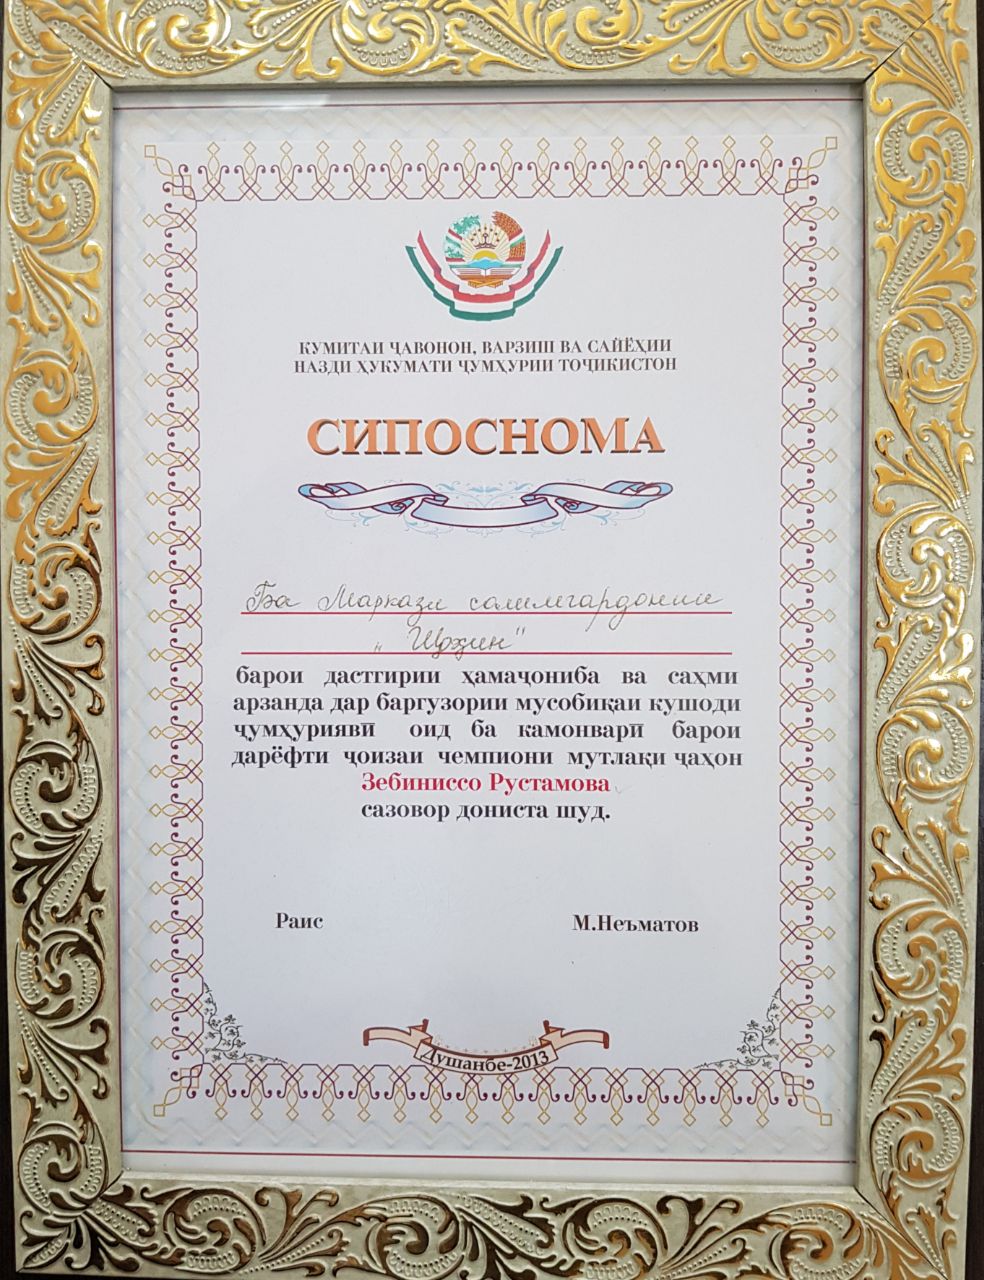 КУМИТАИ ҶАВОНОН, ВАРЗИШ ВА САЙЁҲИИ
НАЗДИ ҲУКУМАТИ ҶУМҲУРИИ ТОҶИКИСТОН
СИПОСНОМА
Ба Маркази солимгардонии
" "
барои дастгирии ҳамаҷониба ва саҳми
арзанда дар баргузории мусобиқаи кушоди
ҷумҳуриявӣ оид ба камонварӣ барои
дарёфти ҷоизаи чемпиони мутлақи ҷаҳон
Зебиниссо Рустамова
сазовор дониста шуд.
Раис М.Неъматов
Душанбе-2013